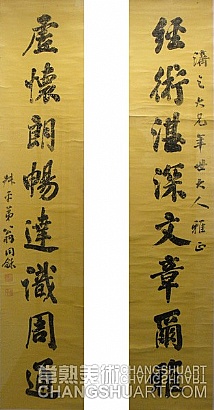 濟之大兄年世大人雅正
經術湛深文章爾雅
虛懷朗暢達識周通
叔平弟翁同龢
常熟美術 CHANGSHUART
CHANGSHUART.COM